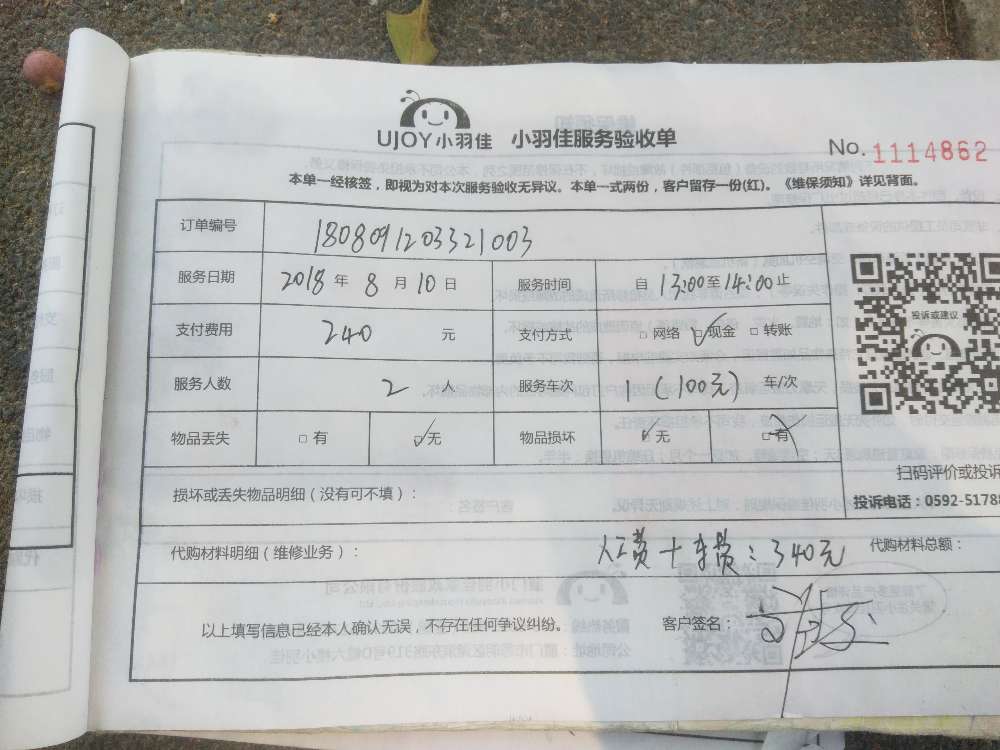 UJOY小羽佳 小羽佳服务验收单
No. 1114862
本单一经核签，即视为对本次服务验收无异议。本单一式两份，客户留存一份(红)。《维保须知》详见背面。
订单编号 1808091203321003
服务日期 2018 年 8 月 10 日 服务时间 自 13:00 至 14:00 止
支付费用 240 元 支付方式 □ 网络 ☑ 现金 □ 转账
投诉或建议
服务人数 2 人 服务车次 1 (100元) 车/次
物品丢失 □ 有 ☑ 无 物品损坏 ☑ 无 □ 有
扫码评价或投诉
损坏或丢失物品明细（没有可不填）：
投诉电话：0592-51788
代购材料明细（维修业务）： 人工费+车费：340元 代购材料总额：
以上填写信息已经本人确认无误，不存在任何争议纠纷。 客户签名：